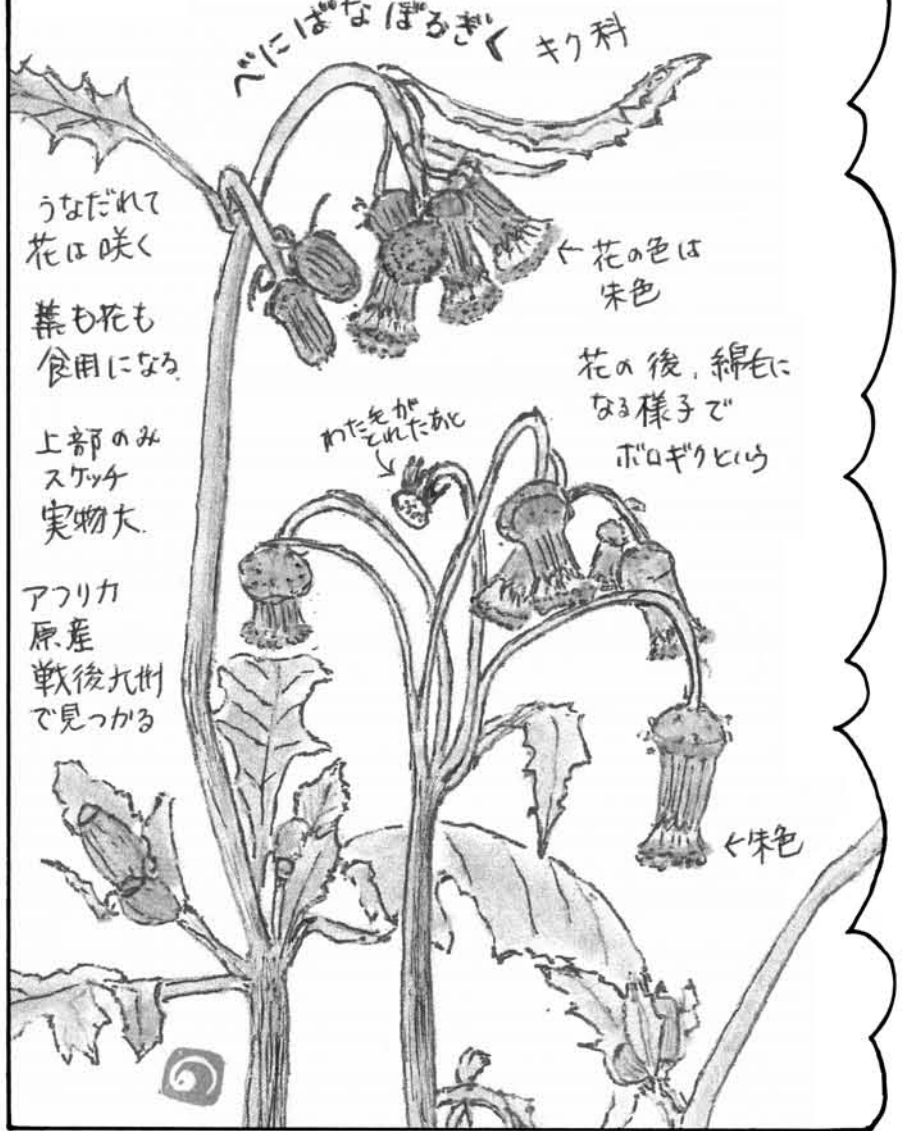 べにばなぼろぎく キク科
うなだれて
花は咲く
葉も花も
食用になる
上部のみ
スケッチ
実物大
アフリカ
原産
戦後九州
で見つかる
←花の色は
朱色
花の後、綿毛に
なる様子で
ボロギクという
わた毛が
とれたあと
←朱色